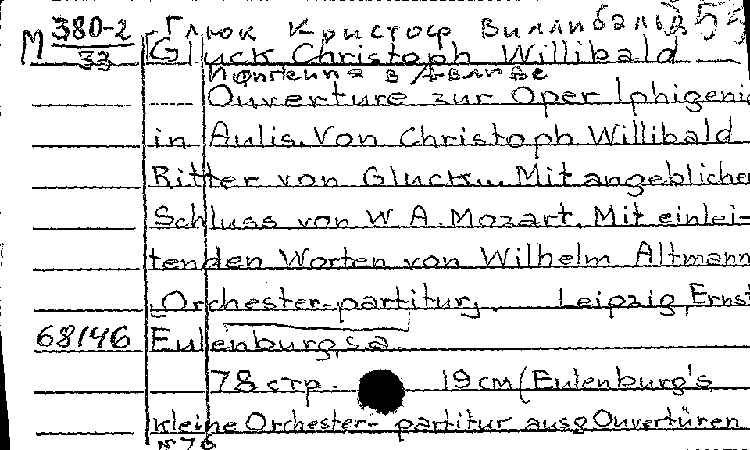 М 380-2/33 Глюк Кристоф Виллибальд 55
Gluck Christoph Willibald
Ифигения в Авлиде
Ouverture zur Oper Iphigenie
in Aulis. Von Christoph Willibald
Ritter von Gluck... Mit angebliche
Schluss von W. A. Mozart. Mit einlei-
tenden Worten von Wilhelm Altmann
[Orchester-partitur]. Leipzig, Ernst
68146 Eulenburg, s.a.
78 стр. 19 см (Eulenburg's
kleine Orchester-partitur ausg Ouvertüren
№ 76